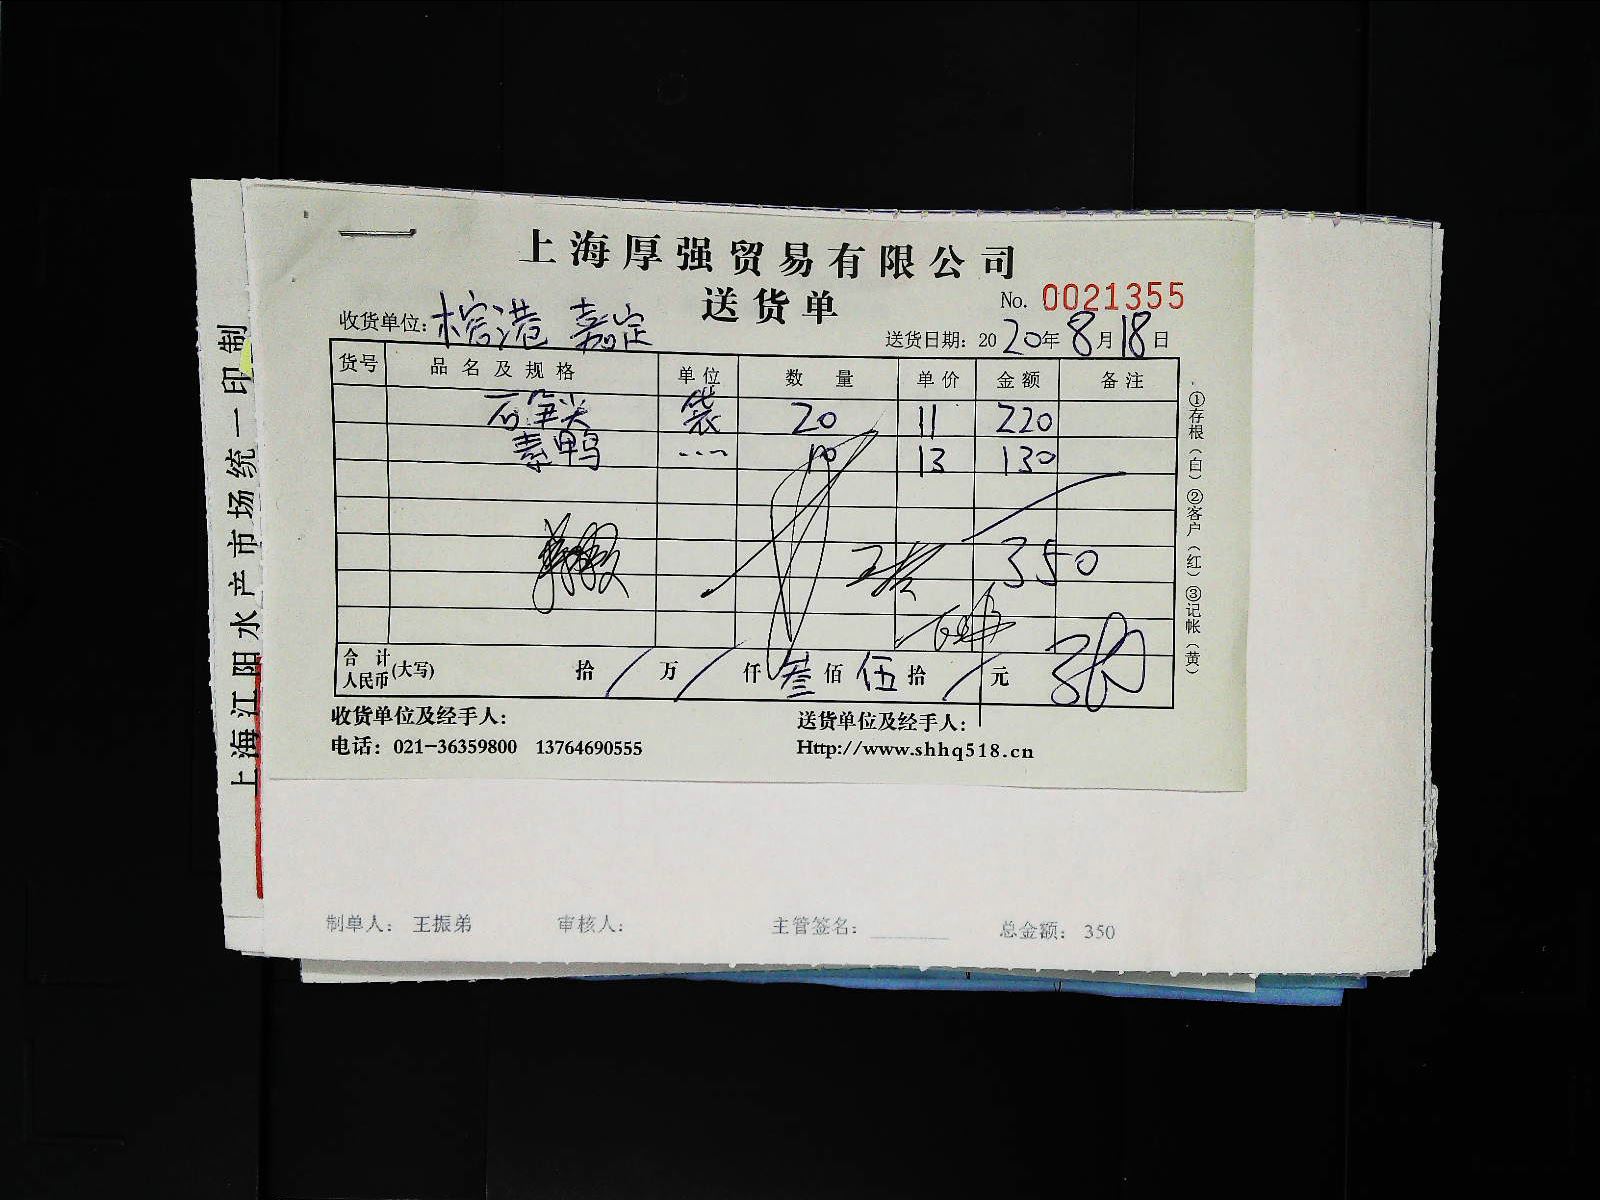 上海厚强贸易有限公司
送货单
No. 0021355
收货单位：榕港 嘉定
送货日期：2020年8月18日
货号 品名及规格 单位 数量 单价 金额 备注
石笋尖 袋 20 11 220
素鸭 … 10 13 130
350
合计人民币(大写) 拾/万/仟叁佰伍拾/元 350
收货单位及经手人：
送货单位及经手人：
电话：021-36359800 13764690555
Http://www.shhq518.cn
①存根（白）②客户（红）③记帐（黄）
上海江阳水产市场统一印制
制单人： 王振弟 审核人： 主管签名： 总金额： 350